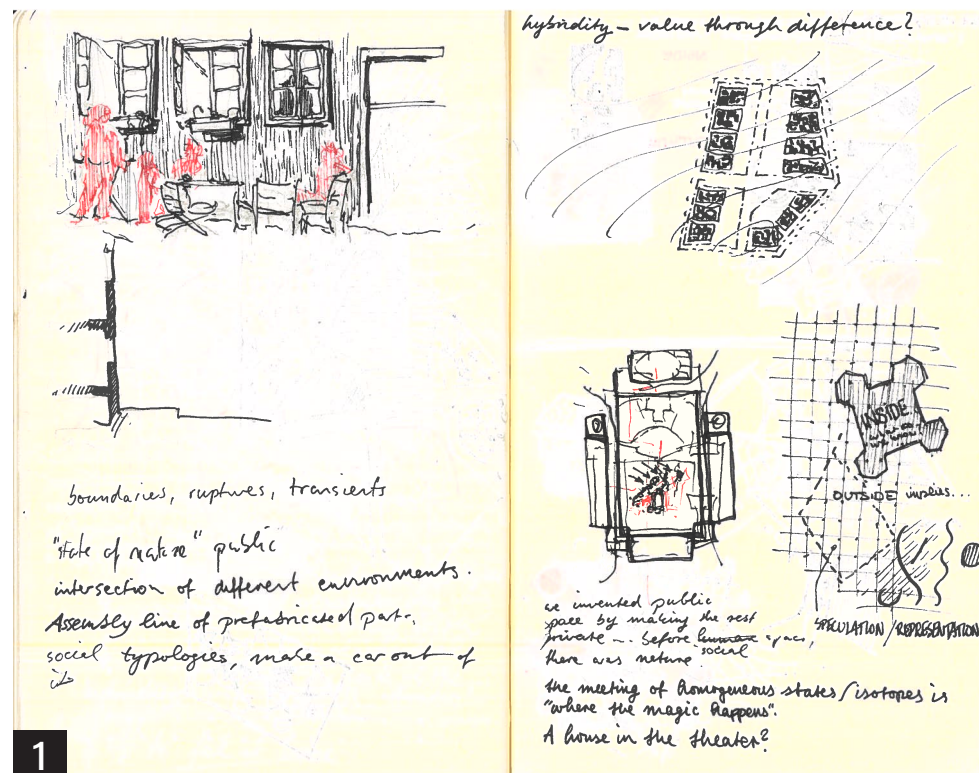 boundaries, ruptures, transients
"state of nature" public
intersection of different environments.
Assembly line of prefabricated parts,
social typologies, make a car out of
it
1
hybridity – value through difference?
INSIDE
OUTSIDE implies...
SPECULATION / REPRESENTATION
we invented public
space by making the rest
private – before space,
there was nature. social
the meeting of homogeneous states/isotopes is
"where the magic happens".
A house in the theater?